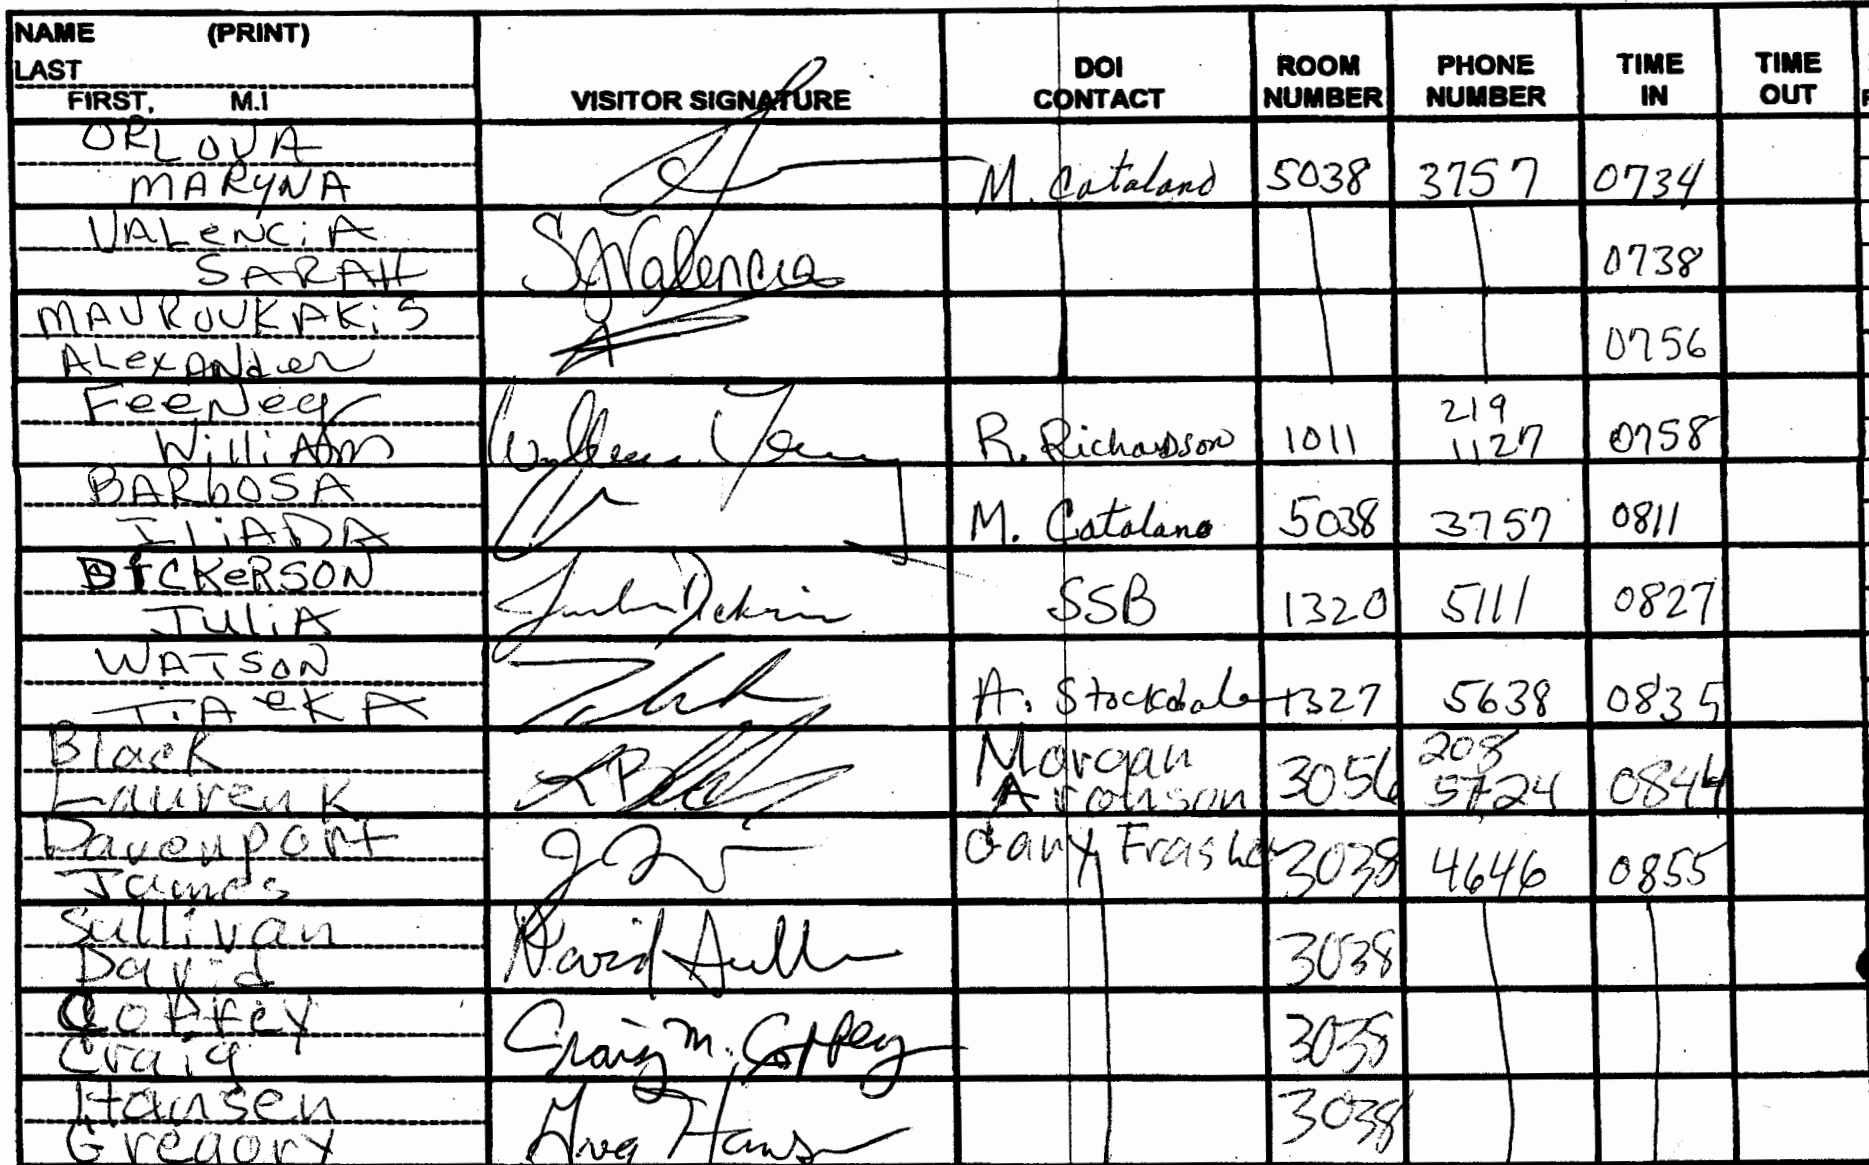 NAME (PRINT)
LAST
FIRST, M.I
VISITOR SIGNATURE
DOI CONTACT
ROOM NUMBER
PHONE NUMBER
TIME IN
TIME OUT
ORLOVA
MARYNA
M. Catalano 5038 3757 0734
VALENCIA
SARAH
SJValencia
0738
MAVROUKAKIS
ALEXANDER
0756
Feeney
William
R. Richardson 1011 219 1127 0758
BARbOSA
ILIADA
M. Catalano 5038 3757 0811
DICKERSON
JULIA
SSB 1320 5111 0827
WATSON
TIAEKA
A. Stockdale 1327 5638 0835
Black
Lauren K
Morgan Aronson 3056 208 5724 0844
Davenport
James
Gary Frasher 3038 4646 0855
Sullivan
David
David
3038
Coffey
Craig
Craig M. Coffey
3038
Hansen
Gregory
Greg Hansen
3038